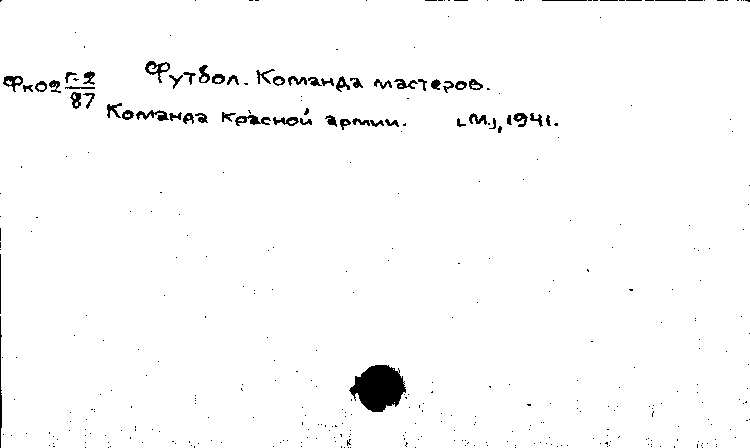 Футбол. Команда мастеров.
Фко2 Г-2/87
Команда Красной армии. [М.], 1941.